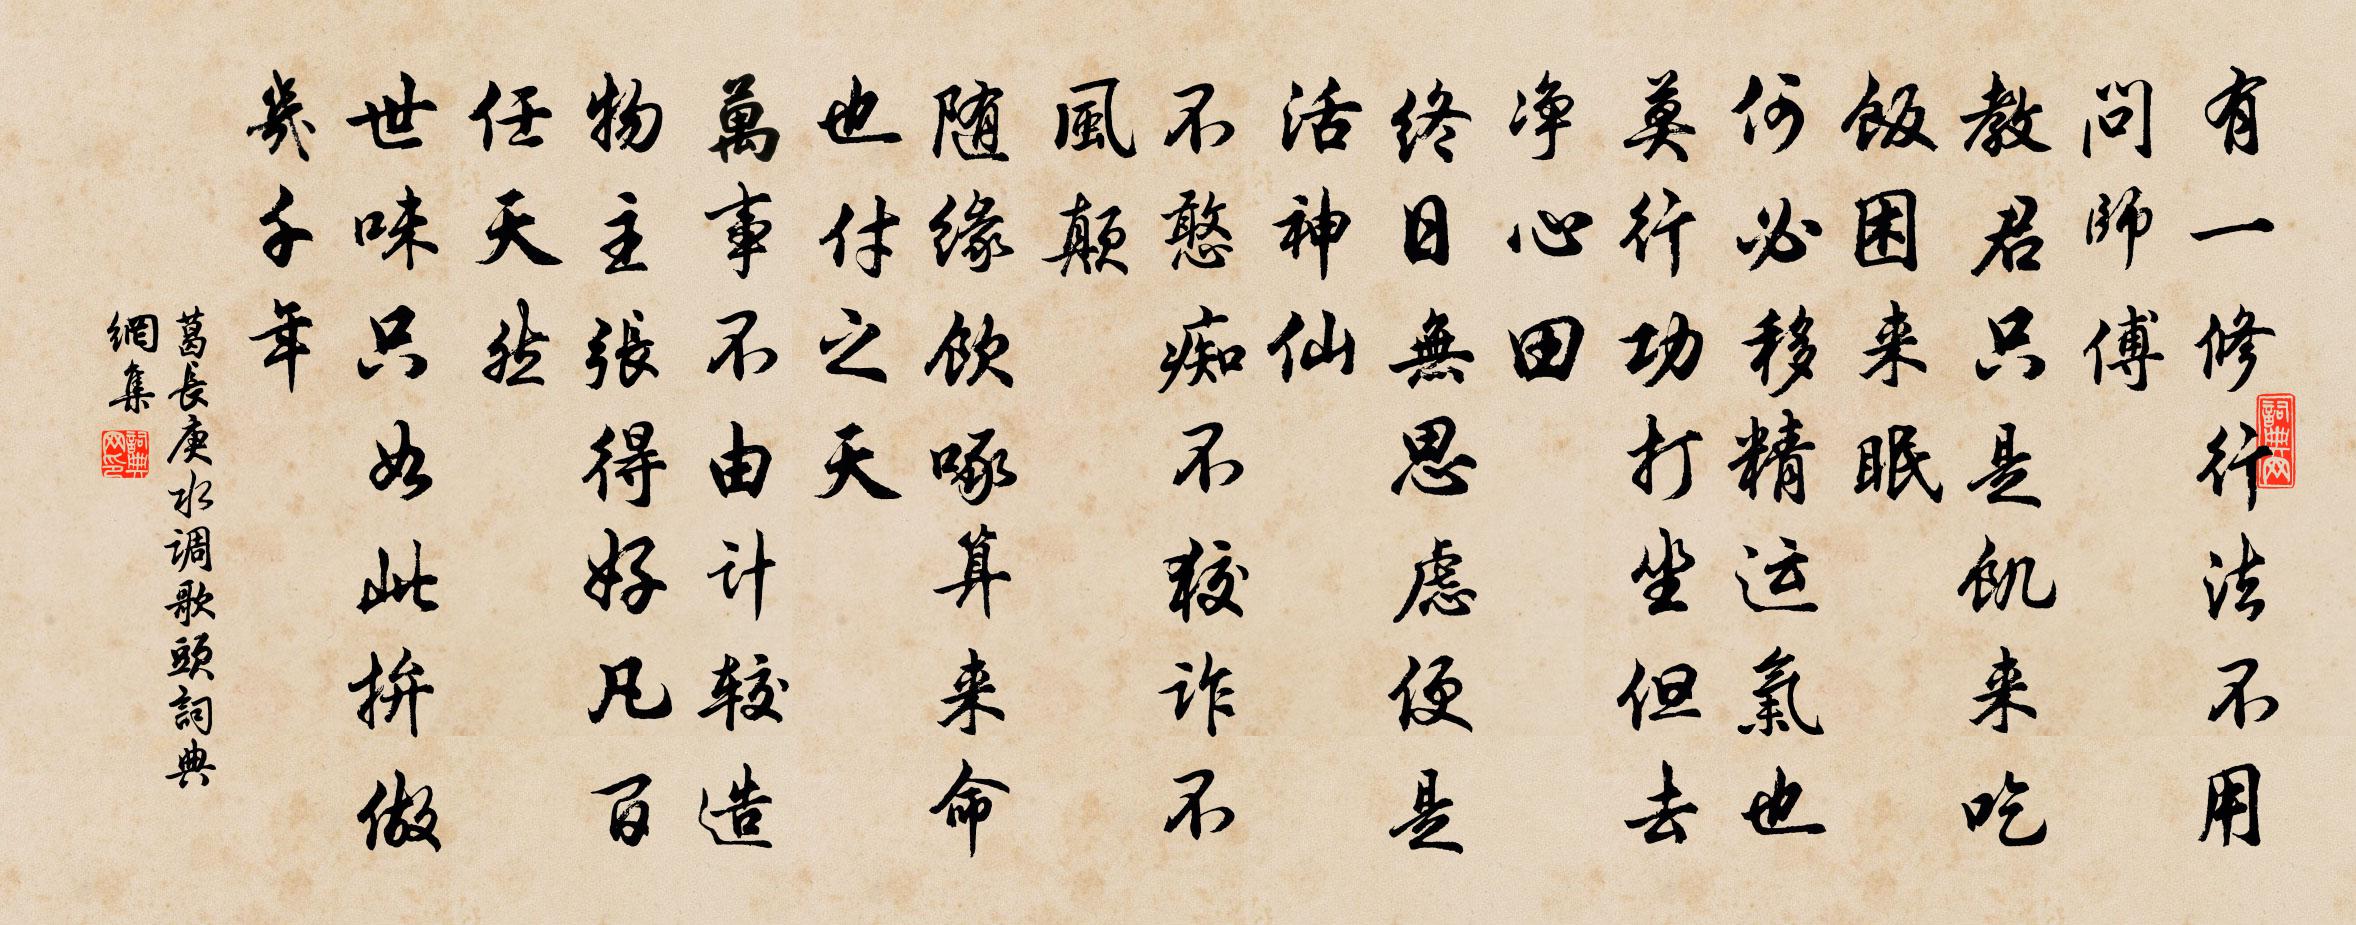 有一修行法不用
問師傅
教君只是飢来吃
飯困来眠
何必移精运氣也
莫行功打坐但去
净心田
終日無思慮便是
活神仙
不憨痴不狡诈不
風颠
随缘飲啄算来命
也付之天
萬事不由计较造
物主張得好凡百
任天然
世味只如此拚做
幾千年
葛長庚水调歌頭詞典
網集
詞典网
詞典网印